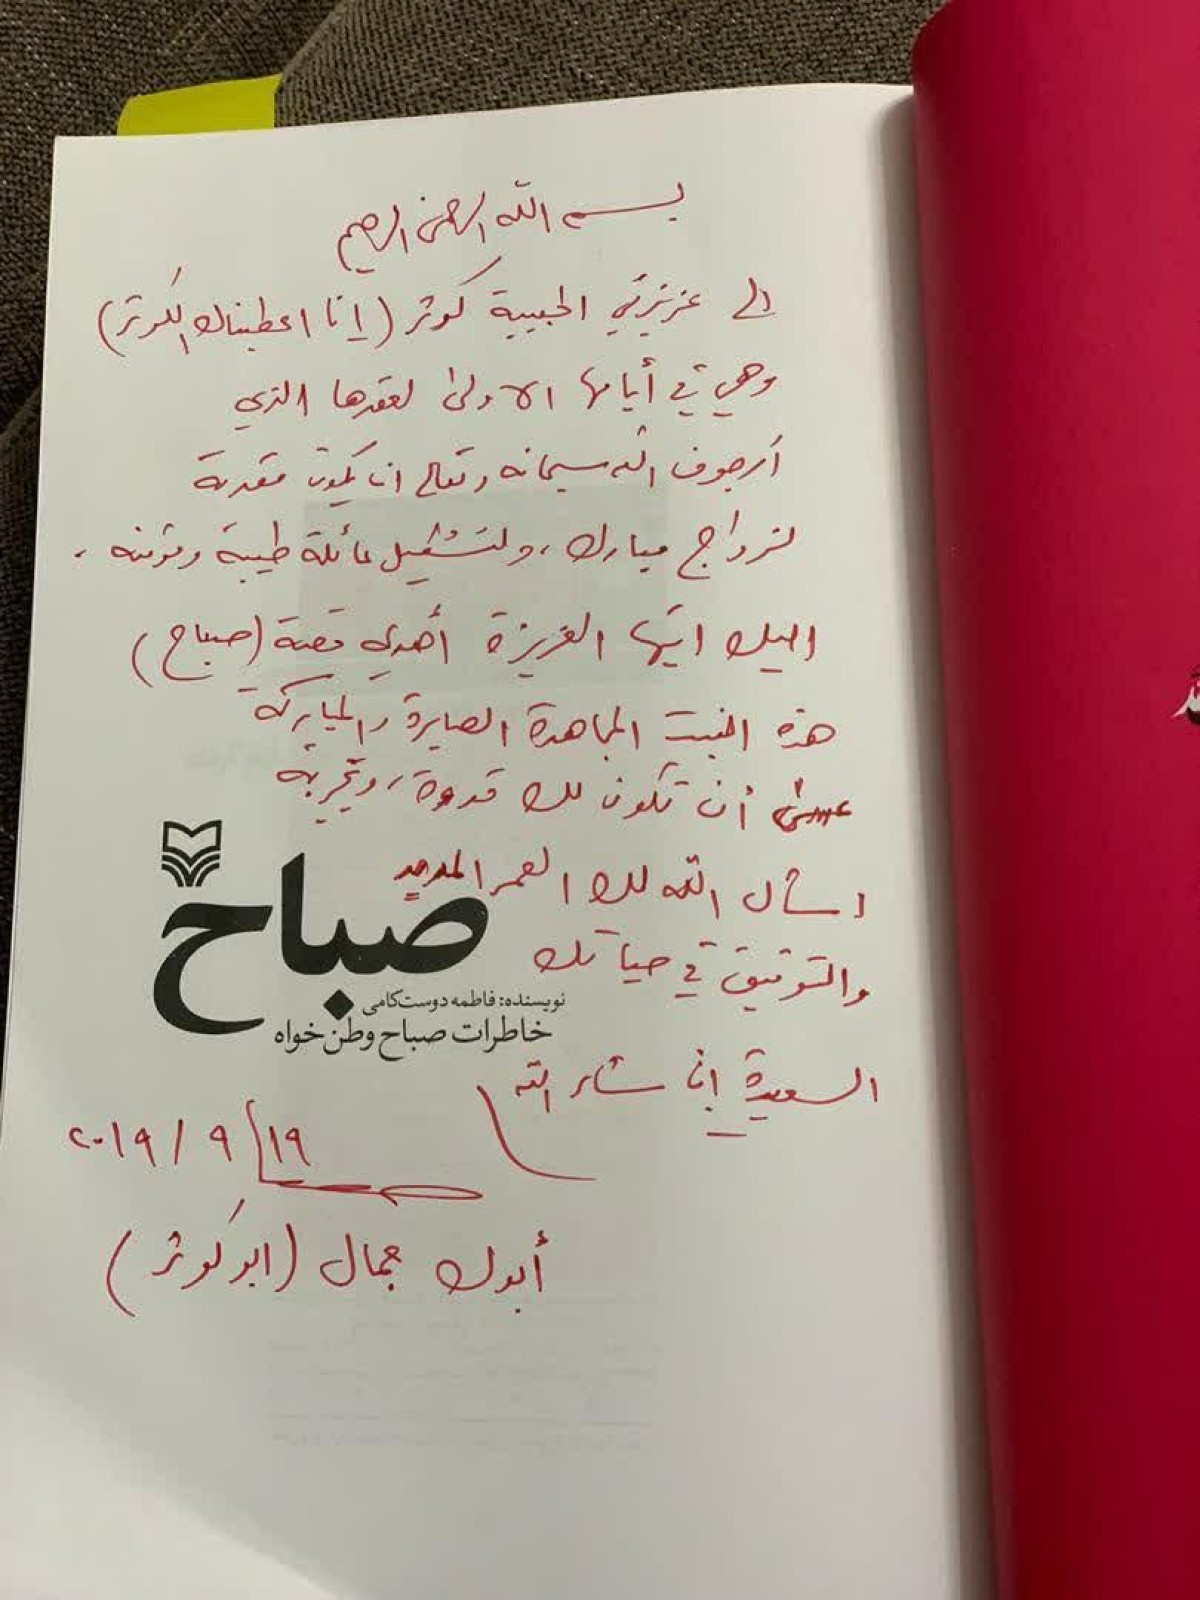 بسم الله الرحمن الرحيم
الى عزيزتي الحبيبة كوثر (إنا اعطيناك الكوثر)
وهي في أيامها الاولى لعقدها الذي
أرجو من الله سبحانه وتعالى ان يكون مقدمة
لزواج مبارك، ولتشكيل عائلة طيبة ومؤمنة،
اليك ايتها العزيزة أهدي قصة (صباح)
هذه البنت المجاهدة الصابرة والمباركة
عسى أن تكون لك قدوة، وتجربة
اسأل الله لك العمر المديد
والتوفيق في حياتك
صباح
نویسنده: فاطمه دوست‌کامی
خاطرات صباح وطن‌خواه
السعيدة إن شاء الله
٢٠١٩ / ٩ / ١٩
أبوك جمال (ابو كوثر)